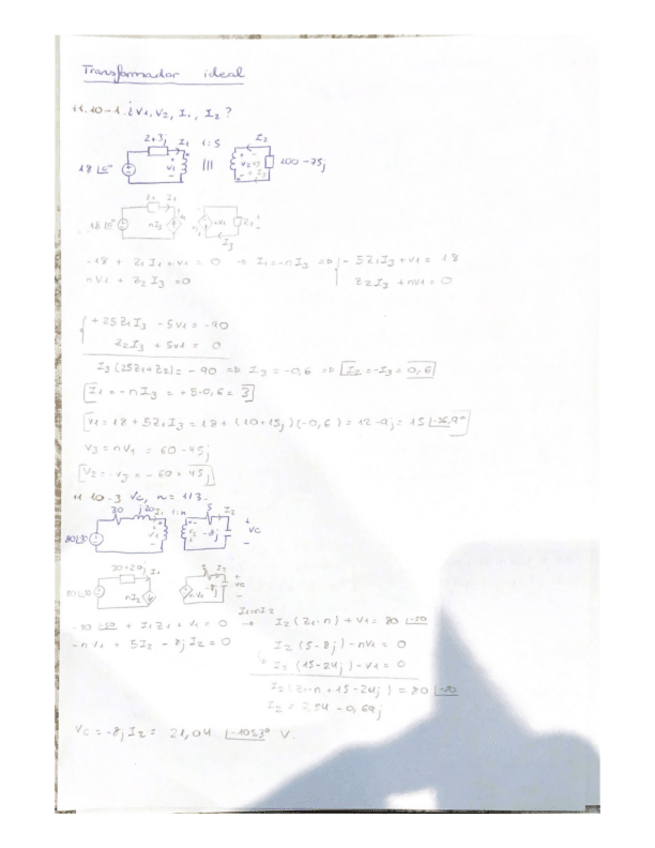 Transformador ideal
11.10-1. ¿V1, V2, I1, I2?
2+3j I1 1:5 I2
18 ∠0° + V1 - ||| + V2 - 100-75j
18 ∠0° nI3 I3
-18 + Z1I1 + V1 = 0 → I1 = -nI3 => { -5Z1I3 + V1 = 18
nV1 + Z2I3 = 0 Z2I3 + nV1 = 0
{ +25Z1I3 - 5V1 = -90
Z2I3 + 5V1 = 0
I3(25Z1+Z2) = -90 => I3 = -0,6 => I2 = -I3 = 0,6
I1 = -nI3 = +5·0,6 = 3
V1 = 18 + 5Z1I3 = 18 + (10+15j)(-0,6) = 12-9j = 15 ∠-36,9°
V3 = nV1 = 60-45j
V2 = -V3 = -60+45j
11.10-3 Vc, n = 1/3.
30 j20 I1 1:n 5 I2
80∠-50 + V1 - -8j + Vc -
30+20j I1 5 I2
80∠-50 nI2 nV1 -8j + Vc -
I1=nI2
-80 ∠-50 + I1Z1 + V1 = 0 → I2(Z1·n) + V1 = 80 ∠-50
-nV1 + 5I2 - 8jI2 = 0 I2(5-8j) - nV1 = 0
I2(15-24j) - V1 = 0
I2(Z1·n + 15-24j) = 80 ∠-50
I2 = 2,54 - 0,69j
Vc = -8jI2 = 21,04 ∠-105,3° V.